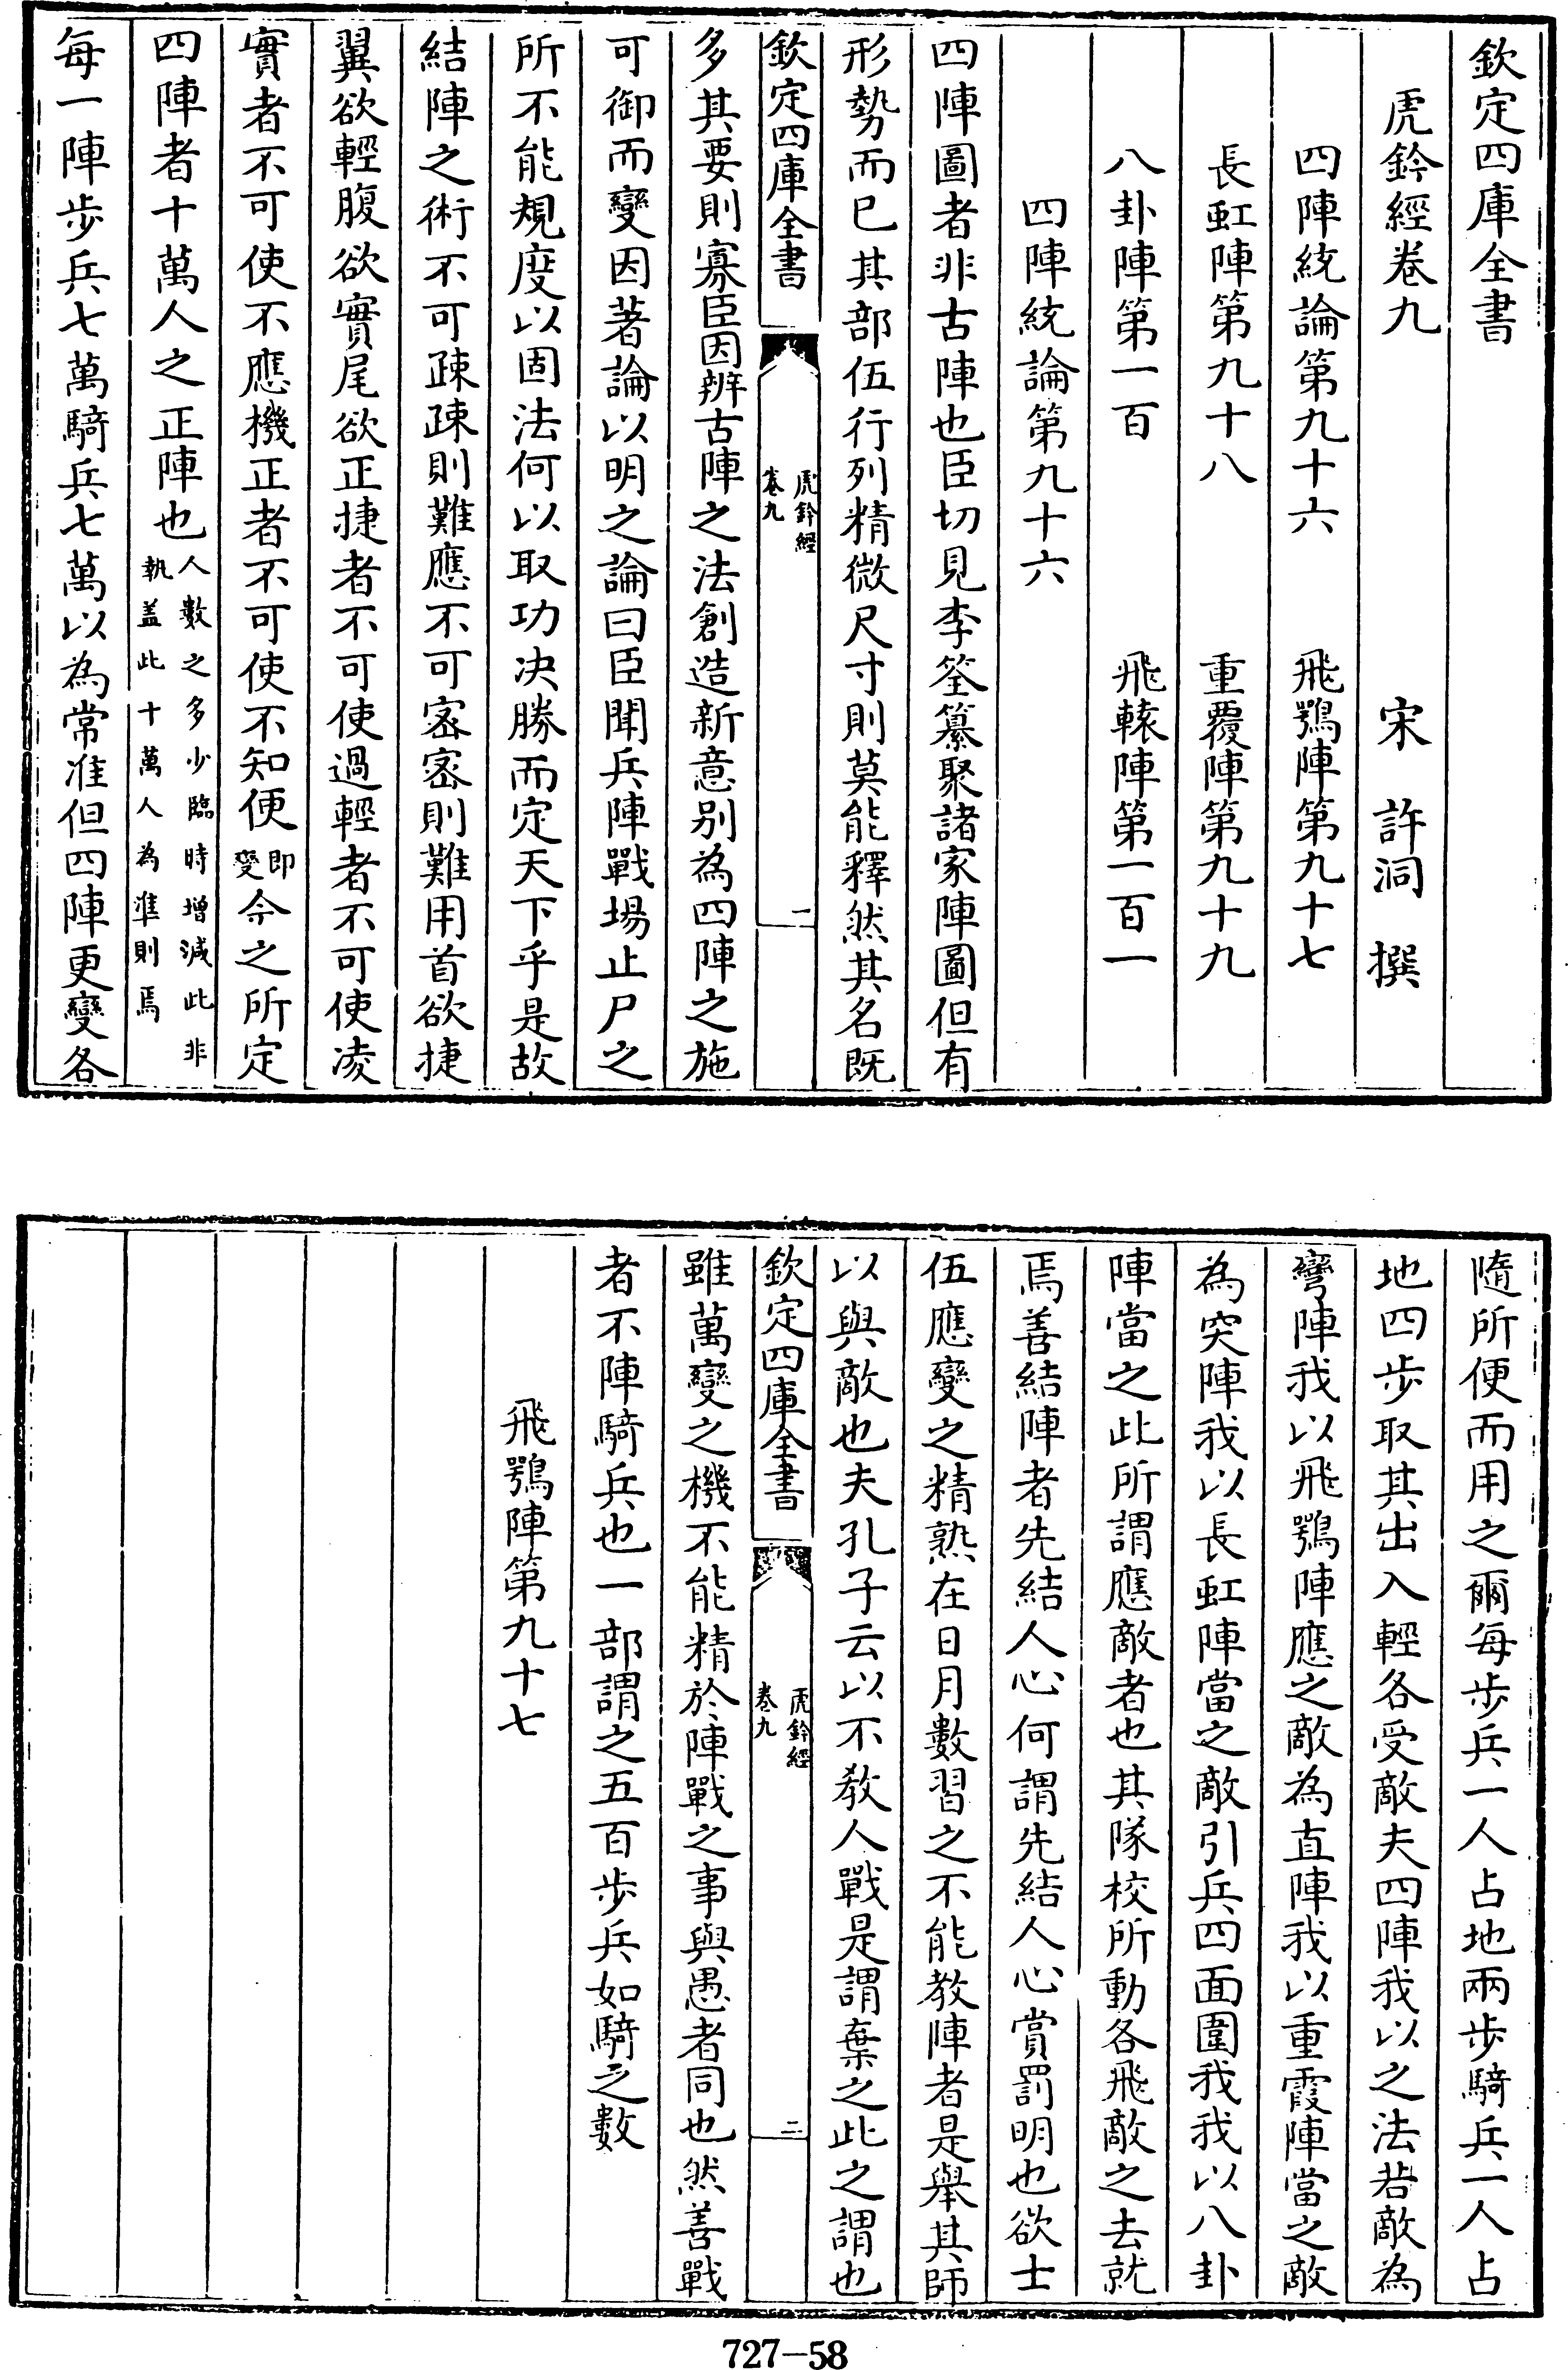 欽定四庫全書
虎鈐經卷九
宋 許洞 撰
四陣統論第九十六 飛鶚陣第九十七
長虹陣第九十八 重覆陣第九十九
八卦陣第一百 飛轅陣第一百一
四陣統論第九十六
四陣圖者非古陣也臣切見李筌纂聚諸家陣圖但有
形勢而已其部伍行列精微尺寸則莫能釋然其名既
欽定四庫全書
虎鈐經
卷九
一
多其要則寡臣因辨古陣之法創造新意别為四陣之施
可御而變因著論以明之論曰臣聞兵陣戰場止尸之
所不能規度以固法何以取功决勝而定天下乎是故
結陣之術不可疎疎則難應不可宻宻則難用首欲捷
翼欲輕腹欲實尾欲正捷者不可使過輕者不可使凌
實者不可使不應機正者不可使不知便即變今之所定
四陣者十萬人之正陣也人數之多少臨時增減此非
執盖此十萬人為準則焉
每一陣步兵七萬騎兵七萬以為常准但四陣更變各
隨所便而用之爾每步兵一人占地兩步騎兵一人占
地四步取其出入輕各受敵夫四陣我以之法若敵為
彎陣我以飛鶚陣應之敵為直陣我以重霞陣當之敵
為突陣我以長虹陣當之敵引兵四面圍我我以八卦
陣當之此所謂應敵者也其隊校所動各飛敵之去就
焉善結陣者先結人心何謂先結人心賞罰明也欲士
伍應變之精熟在日月數習之不能教陣者是舉其師
以與敵也夫孔子云以不教人戰是謂棄之此之謂也
欽定四庫全書
虎鈐經
卷九
二
雖萬變之機不能精於陣戰之事與愚者同也然善戰
者不陣騎兵也一部謂之五百步兵如騎之數
飛鶚陣第九十七
727-58